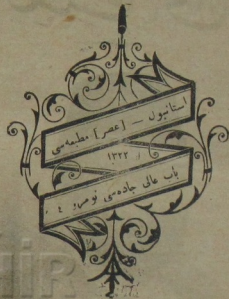 استانبول — [عصر] مطبعه‌سی
١٣٢٢
باب عالی جاده‌سی نومرو ٤
HiR